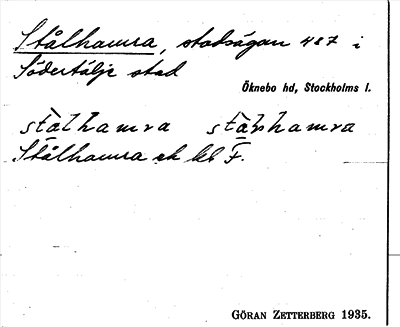 Stålhamra, stadsägan 487 i
Södertälje stad
Öknebo hd, Stockholms l.
stàlhamra stàlshamra
Stålhamra ek bl F.
GÖRAN ZETTERBERG 1935.